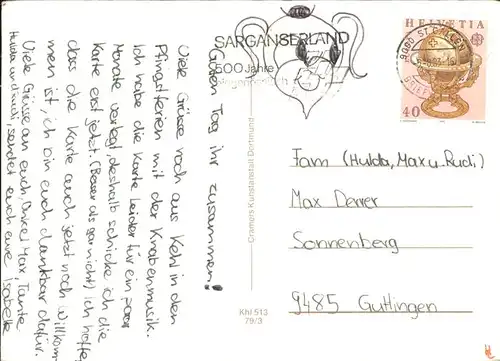 Guten Tag ihr zusammen!
Viele Grüsse noch aus Kehl in den
Pfingstferien mit der Knabenmusik.
Ich habe die Karte leider für ein paar
Monate verlegt, deshalb schicke ich die
Karte erst jetzt. (Besser als gar nicht) Ich hoffe,
dass die Karte auch jetzt noch willkom-
men ist. Ich bin euch dankbar dafür.
Viele Grüsse an euch, Onkel Max, Tante
Hulda und auch, sendet euch eure Isabelle
SARGANSERLAND
500 Jahre
Cramers Kunstanstalt Dortmund
Khl 513
79/3
HELVETIA
40
9000 ST. GALLEN
Fam (Hulda, Max u. Rudi)
Max Derrer
Sonnenberg
9485 Guttingen